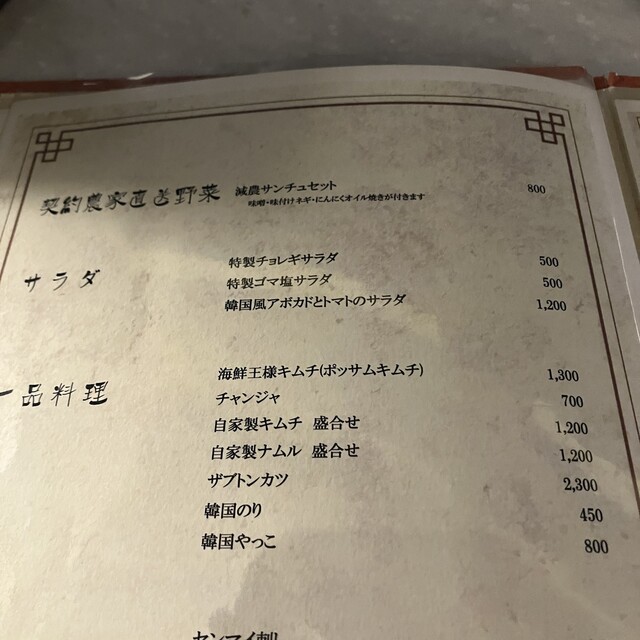 契約農家直送野菜
減農サンチュセット 800
味噌・味付けネギ・にんにくオイル焼きが付きます
サラダ
特製チョレギサラダ 500
特製ゴマ塩サラダ 500
韓国風アボカドとトマトのサラダ 1,200
一品料理
海鮮王様キムチ(ポッサムキムチ) 1,300
チャンジャ 700
自家製キムチ 盛合せ 1,200
自家製ナムル 盛合せ 1,200
ザブトンカツ 2,300
韓国のり 450
韓国やっこ 800
センマイ刺し